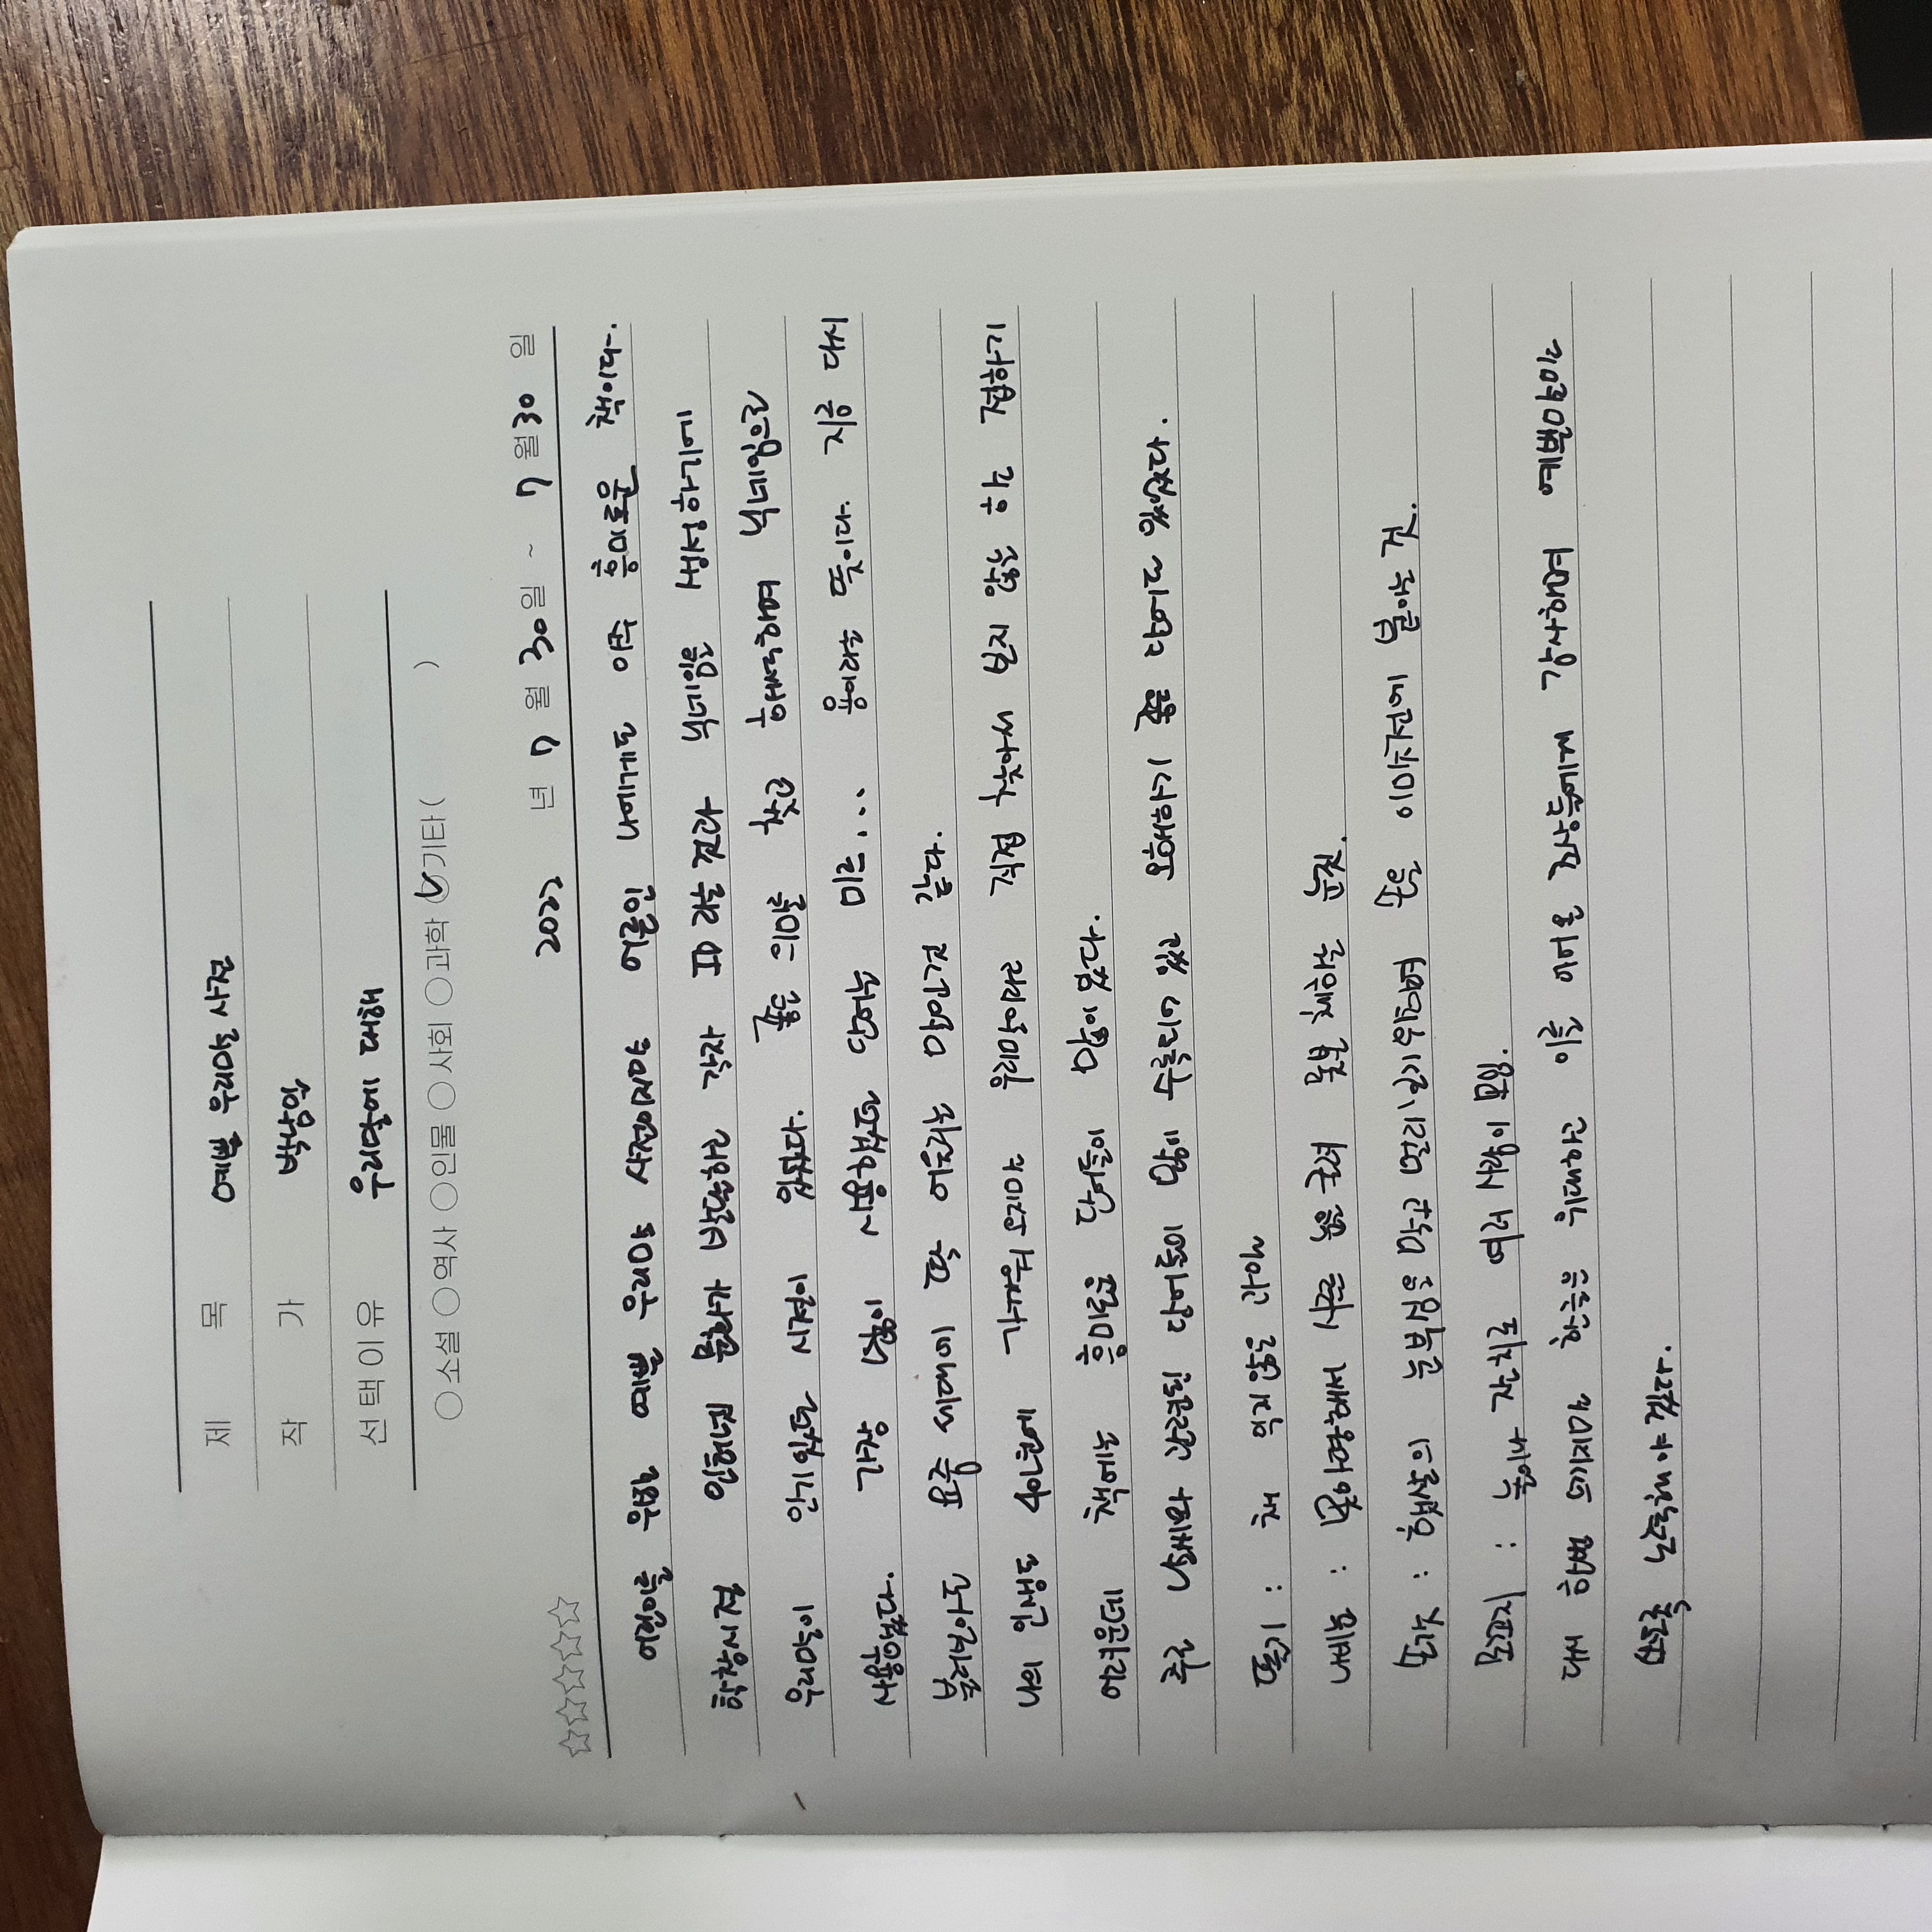 제 목 예쁜 우리말 사전
작 가 박남일
선택이유 우리말에 대해
소설 역사 인물 사회 과학 기타( )
2022 년 7 월 30일 ~ 7 월 30 일
어린이를 위한 예쁜 우리말 사전이지만 어른인 나에게도 아주 흥미로운 책이다.
학창시절 인터넷 문화가 발달하고 각자 ID 라는 것과 닉네임을 생성하기에
우리말이 인기있던 시절이 있었다. 좋은 의미를 찾고 해석하며 닉네임으로
사용했었다. 가장 많이 사용했던 단어는 미르... 용이라는 뜻이다. 지금 다시
불러보아도 요즘 세대에 딱 어울리는 말인것 같다.
나의 인생도 40년에 가까워 오지만 우리말이라고 직접 찾아서 보지 않는 한 접하기
어려운데 책에는 흥미로운 단어들이 많이 있다.
주로 날씨와 관련된 단어들이 많이 수록되어 있고 오해하기 좋은 단어도 있었다.
똘기 : 채 익지 않은 과일
나비눈 : 못마땅해서 사르르 눈을 굴려 못본 체하는 눈짓.
손갓 : 햇살의 눈부심을 막고 멀리 보기 위하여 손을 이마전에 붙이는 것.
모꼬지 : 놀이나 잔치로 여러 사람이 모임.
다시 한번 느끼지만 한글은 위대하고 이를 이어온 조상들에게 감사하며 예쁜말만
쓰도록 노력해야겠다.